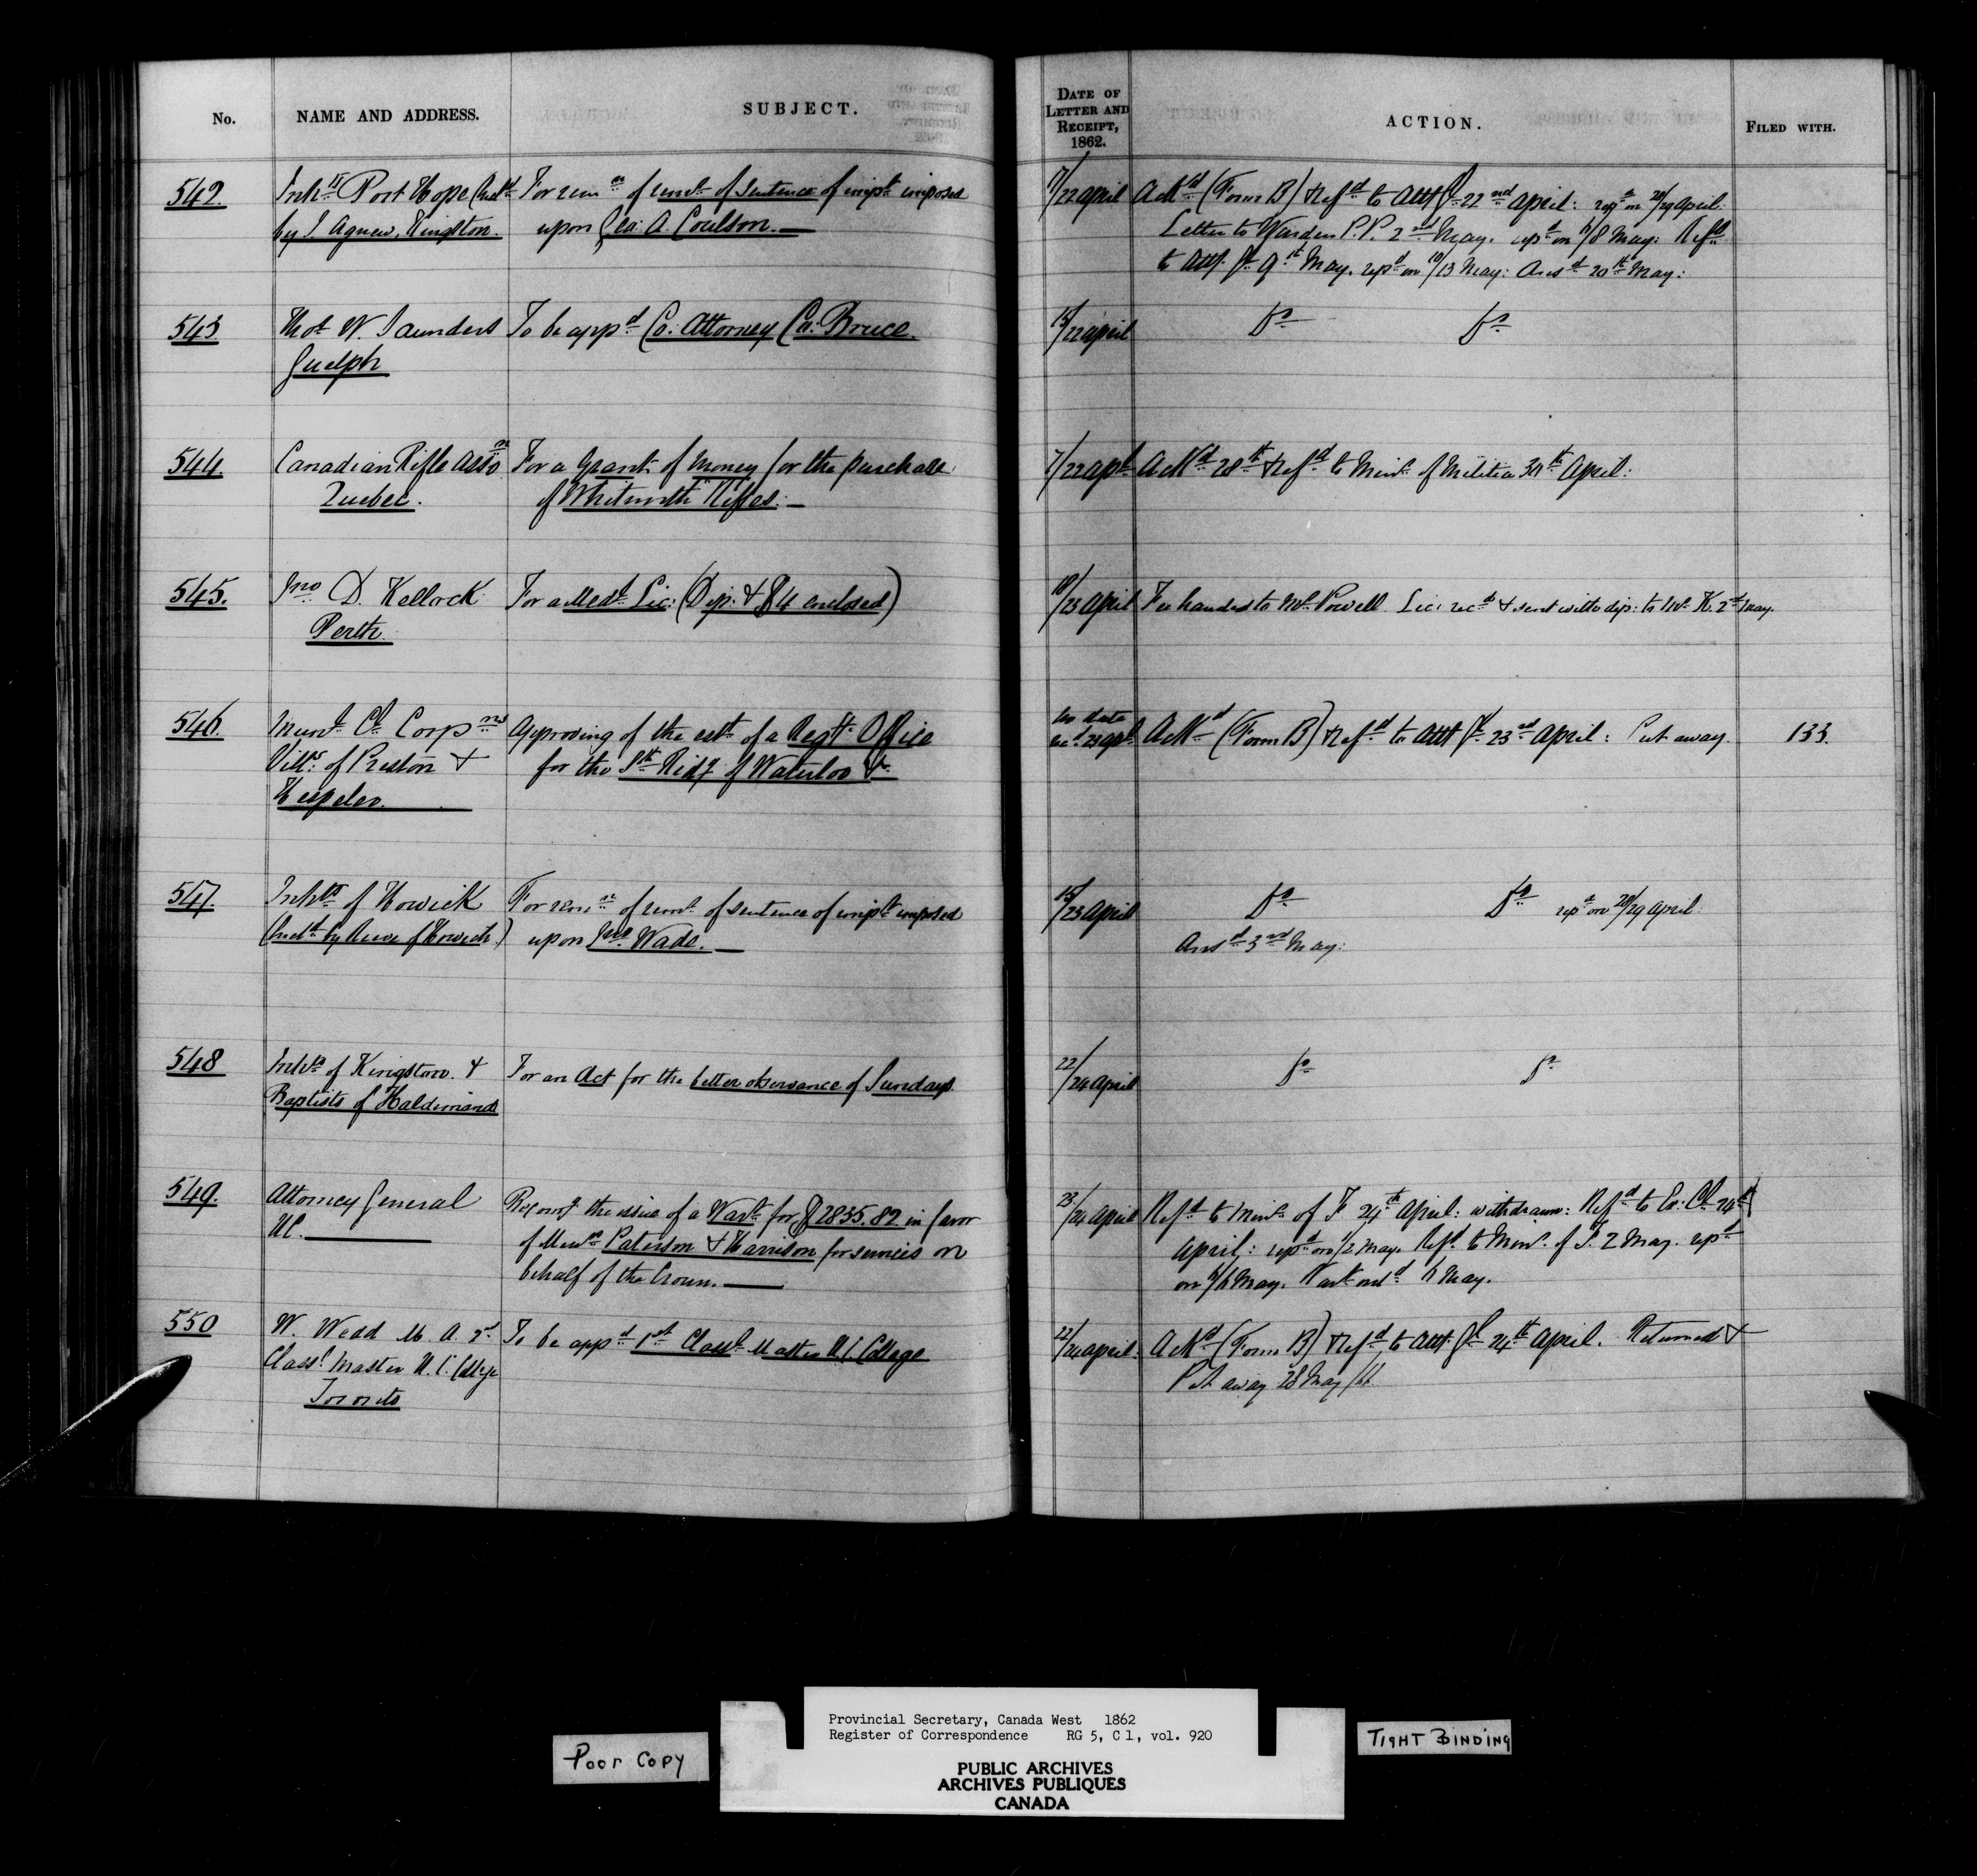 No. NAME AND ADDRESS. SUBJECT. DATE OF LETTER AND RECEIPT, 1862. ACTION. FILED WITH.
542. Inhts Port Hope (Encld For remn of remr of sentence of imptt imposed 17/22 april Ackd (Form B) & Refd to Atty Gl 22nd april: repd on 28/29 april.
by J. Agnew, Kingston. upon Geo: A. Coulson. Letter to Warden P.P. 2nd May. repd on 6/8 May: Refd
to Atty. Gl 9th May. repd on 10/13 May: Ansd 20th May:
543. Thos W. Saunders To be appd Co: Attorney Co: Bruce. 19/22 april Do Do
Guelph
544. Canadian Rifle Asson For a Grant of money for the purchase 7/22 apl Ackd 28th & Refd to Minr of Militia 30th April:
Quebec. of "Whitworth" Rifles.
545. Jno D. Kellock For a Medl Lic: (Dip: & $4 enclosed) 19/23 April Fee handed to Mr Powell Lic: recd & sent with dip: to Mr K. 2nd May.
Perth.
546. Munl Cl Corpns Approving of the estt of a Regy Office no date recd 23 apl Ackd (Form B) & Refd to Atty Gl 23rd april: Put away. 133.
Vills of Preston & for the Sth Ridg of Waterloo &c.
Hespeler.
547. Inhts of Howick For remn of remr of sentence of imptt imposed 15/23 April Do Do repd on 28/29 April:
(Encld by Reeve of Howick) upon Jno Wade. Ansd 3rd May:
548 Inhts of Kingston & For an Act for the better observance of Sundays. 22/24 april Do Do
Baptists of Haldimand
549. Attorney General Recomg the issue of a Wart for $2835.82 in favor 23/24 April Refd to Minr of F 24th April: withdrawn: Refd to Ex: Cl 24th
UC. of Messrs Paterson & Harrison for services on April: repd on 1/2 May. Refd to Minr of F. 2 May. repd
behalf of the Crown. on 6/6 May. Wart 6 May.
550 W. Wedd M. A. 2nd To be appd 1st Classl Master U.C. College 22/24 april: Ackd (Form B) & Refd to Atty. Gl 24th April. Returned &
Classl Master U.C. College Put away 28 May/62
Toronto
Poor Copy
Provincial Secretary, Canada West 1862
Register of Correspondence RG 5, C 1, vol. 920
PUBLIC ARCHIVES
ARCHIVES PUBLIQUES
CANADA
TIGHT BINDING